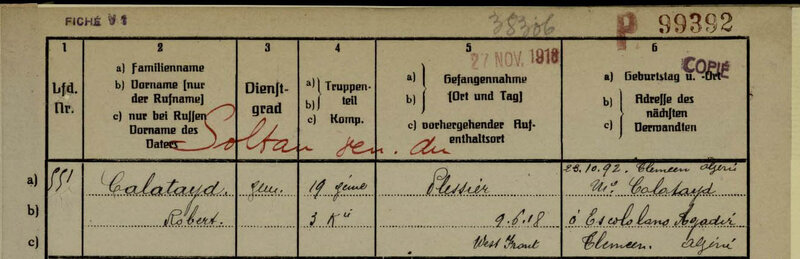 FICHÉ V1
38306
P 99392
27 NOV. 1918
COPIÉ
1 2 3 4 5 6
Lfd. Nr.
a) Familienname
b) Vorname [nur der Rufname]
c) nur bei Russen Vorname des Vaters
Dienst-grad
a) Truppen-
b) teil
c) Komp.
a) Gefangennahme
b) [Ort und Tag]
c) vorhergehender Auf-enthaltsort
a) Geburtstag u. -Ort
b) Adresse des nächsten Verwandten
c)
Soltau gen. du
a) 551 Calatayd. gem. 19 génie Plessier 23.10.92. Tlemcen Algérie
Me Calatayd
b) Robert. 3 Kie 9.6.18 à Escololano Agadir
c) West Front Tlemcen. Algérie